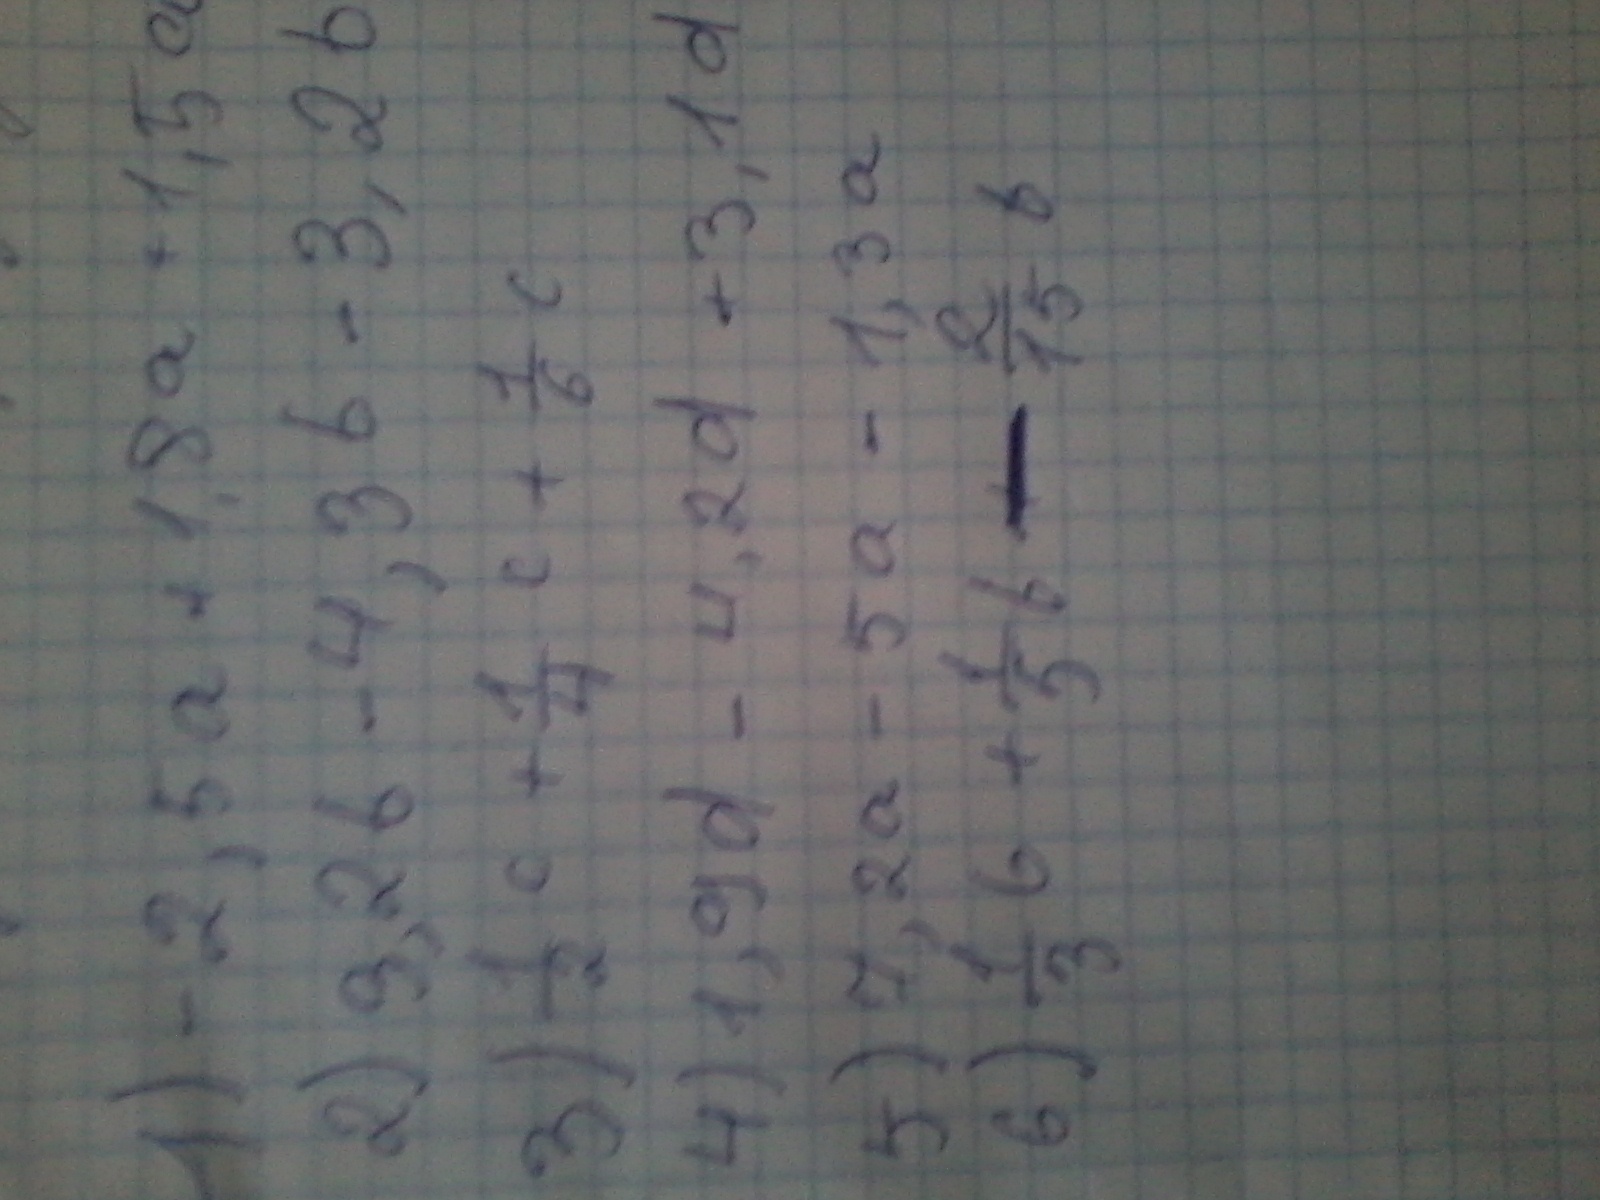 1) - 2,5a + 1,8a + 1,5a
2) 9,2b - 4,3b - 3,2b
3) 1/2 c + 1/4 c + 1/6 c
4) 1,9d - 4,2d + 3,1d
5) 7,2a - 5a - 1,3a
6) 1/3 b + 1/5 b - 2/15 b